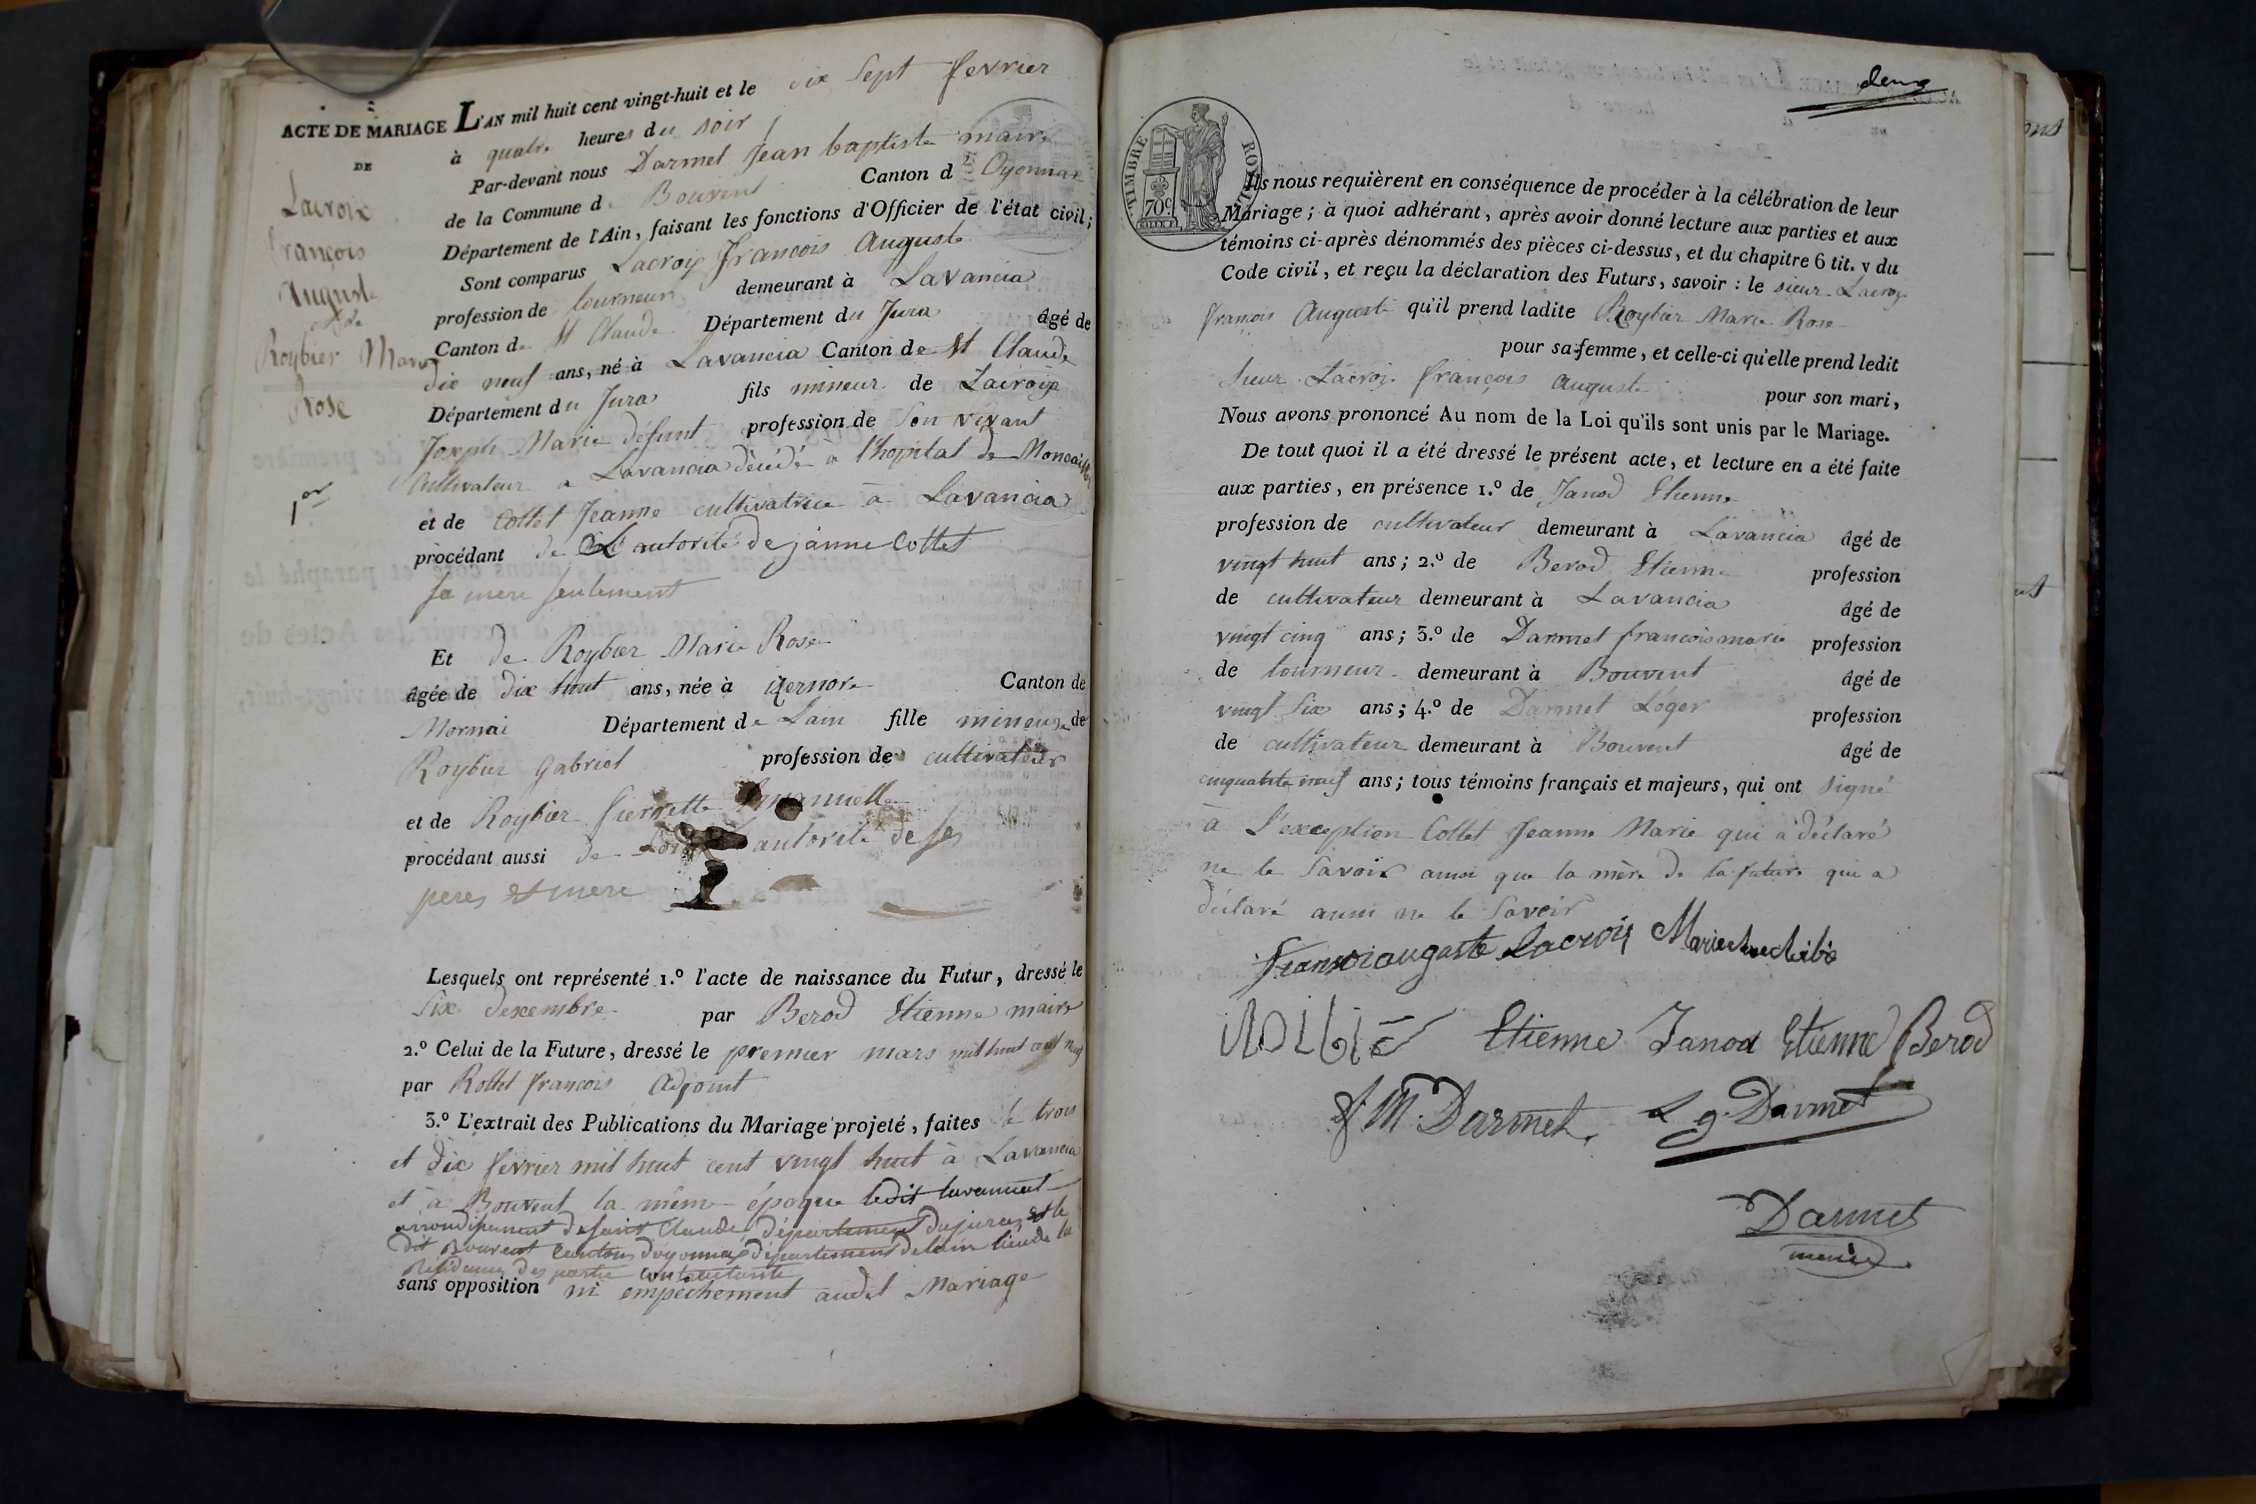 ACTE DE MARIAGE
DE
Lacroix
françois
Auguste
et de
Roybier Marie
Rose
1er
L'AN mil huit cent vingt-huit et le dix sept fevrier
à quatre heures du soir
Par-devant nous Darmet Jean baptiste maire
de la Commune de Bouvent Canton d Oyonnax
Département de l'Ain, faisant les fonctions d'Officier de l'état civil;
Sont comparus Lacroix françois Auguste
profession de tourneur demeurant à Lavancia
Canton de St Claude Département du Jura âgé de
dix neuf ans, né à Lavancia Canton de St Claude
Département du Jura fils mineur de Lacroix
Joseph Marie défunt profession de son vivant
Cultivateur a Lavancia décédé à l'hopital de
et de Collet Jeanne cultivatrice à Lavancia
procédant de L'autorité de janne Collet
sa mere seulement
Et de Roybier Marie Rose
âgée de dix huit ans, née à izernore Canton de
Mornai Département de Lain fille mineure de
Roybier Gabriel profession de cultivateur
et de Roybier Pierrette
procédant aussi de autorité de ses
peres et mere
Lesquels ont représenté 1.º l'acte de naissance du Futur, dressé le
Six decembre par Berod Etienne maire
2.º Celui de la Future, dressé le premier mars mil huit cent
par Rollet françois Adjoint
3.º L'extrait des Publications du Mariage projeté, faites le trois
et dix fevrier mil huit cent vingt huit à Lavancia
et à Bouvent la même époque ledit lavancia
arrondisement de saint Claude département du jura et le
dit Bouvent canton d'oyonnax département de lain lieu de la
Résidence des partie contractante
sans opposition ni empechement audit Mariage
deux
TIMBRE ROYAL
70c
Ils nous requièrent en conséquence de procéder à la célébration de leur
Mariage; à quoi adhérant, après avoir donné lecture aux parties et aux
témoins ci-après dénommés des pièces ci-dessus, et du chapitre 6 tit. v du
Code civil, et reçu la déclaration des Futurs, savoir: le sieur Lacroix
françois Auguste qu'il prend ladite Roybier Marie Rose
pour sa femme, et celle-ci qu'elle prend ledit
sieur Lacroix françois auguste pour son mari,
Nous avons prononcé Au nom de la Loi qu'ils sont unis par le Mariage.
De tout quoi il a été dressé le présent acte, et lecture en a été faite
aux parties, en présence 1.º de Janod Etienne
profession de cultivateur demeurant à Lavancia âgé de
vingt huit ans; 2.º de Berod Etienne profession
de cultivateur demeurant à Lavancia âgé de
vingt cinq ans; 3.º de Darmet françois marie profession
de tourneur demeurant à Bouvent âgé de
vingt six ans; 4.º de Darmet Léger profession
de cultivateur demeurant à Bouvent âgé de
cinquante neuf ans; tous témoins français et majeurs, qui ont signé
à l'exception Collet Jeanne Marie qui a déclaré
ne le savoir ainsi que la mère de la future qui a
déclaré aussi ne le savoir
Lacroix
Etienne Janod Etienne Berod
f M. Darmet L g. Darmet
Darmet
maire